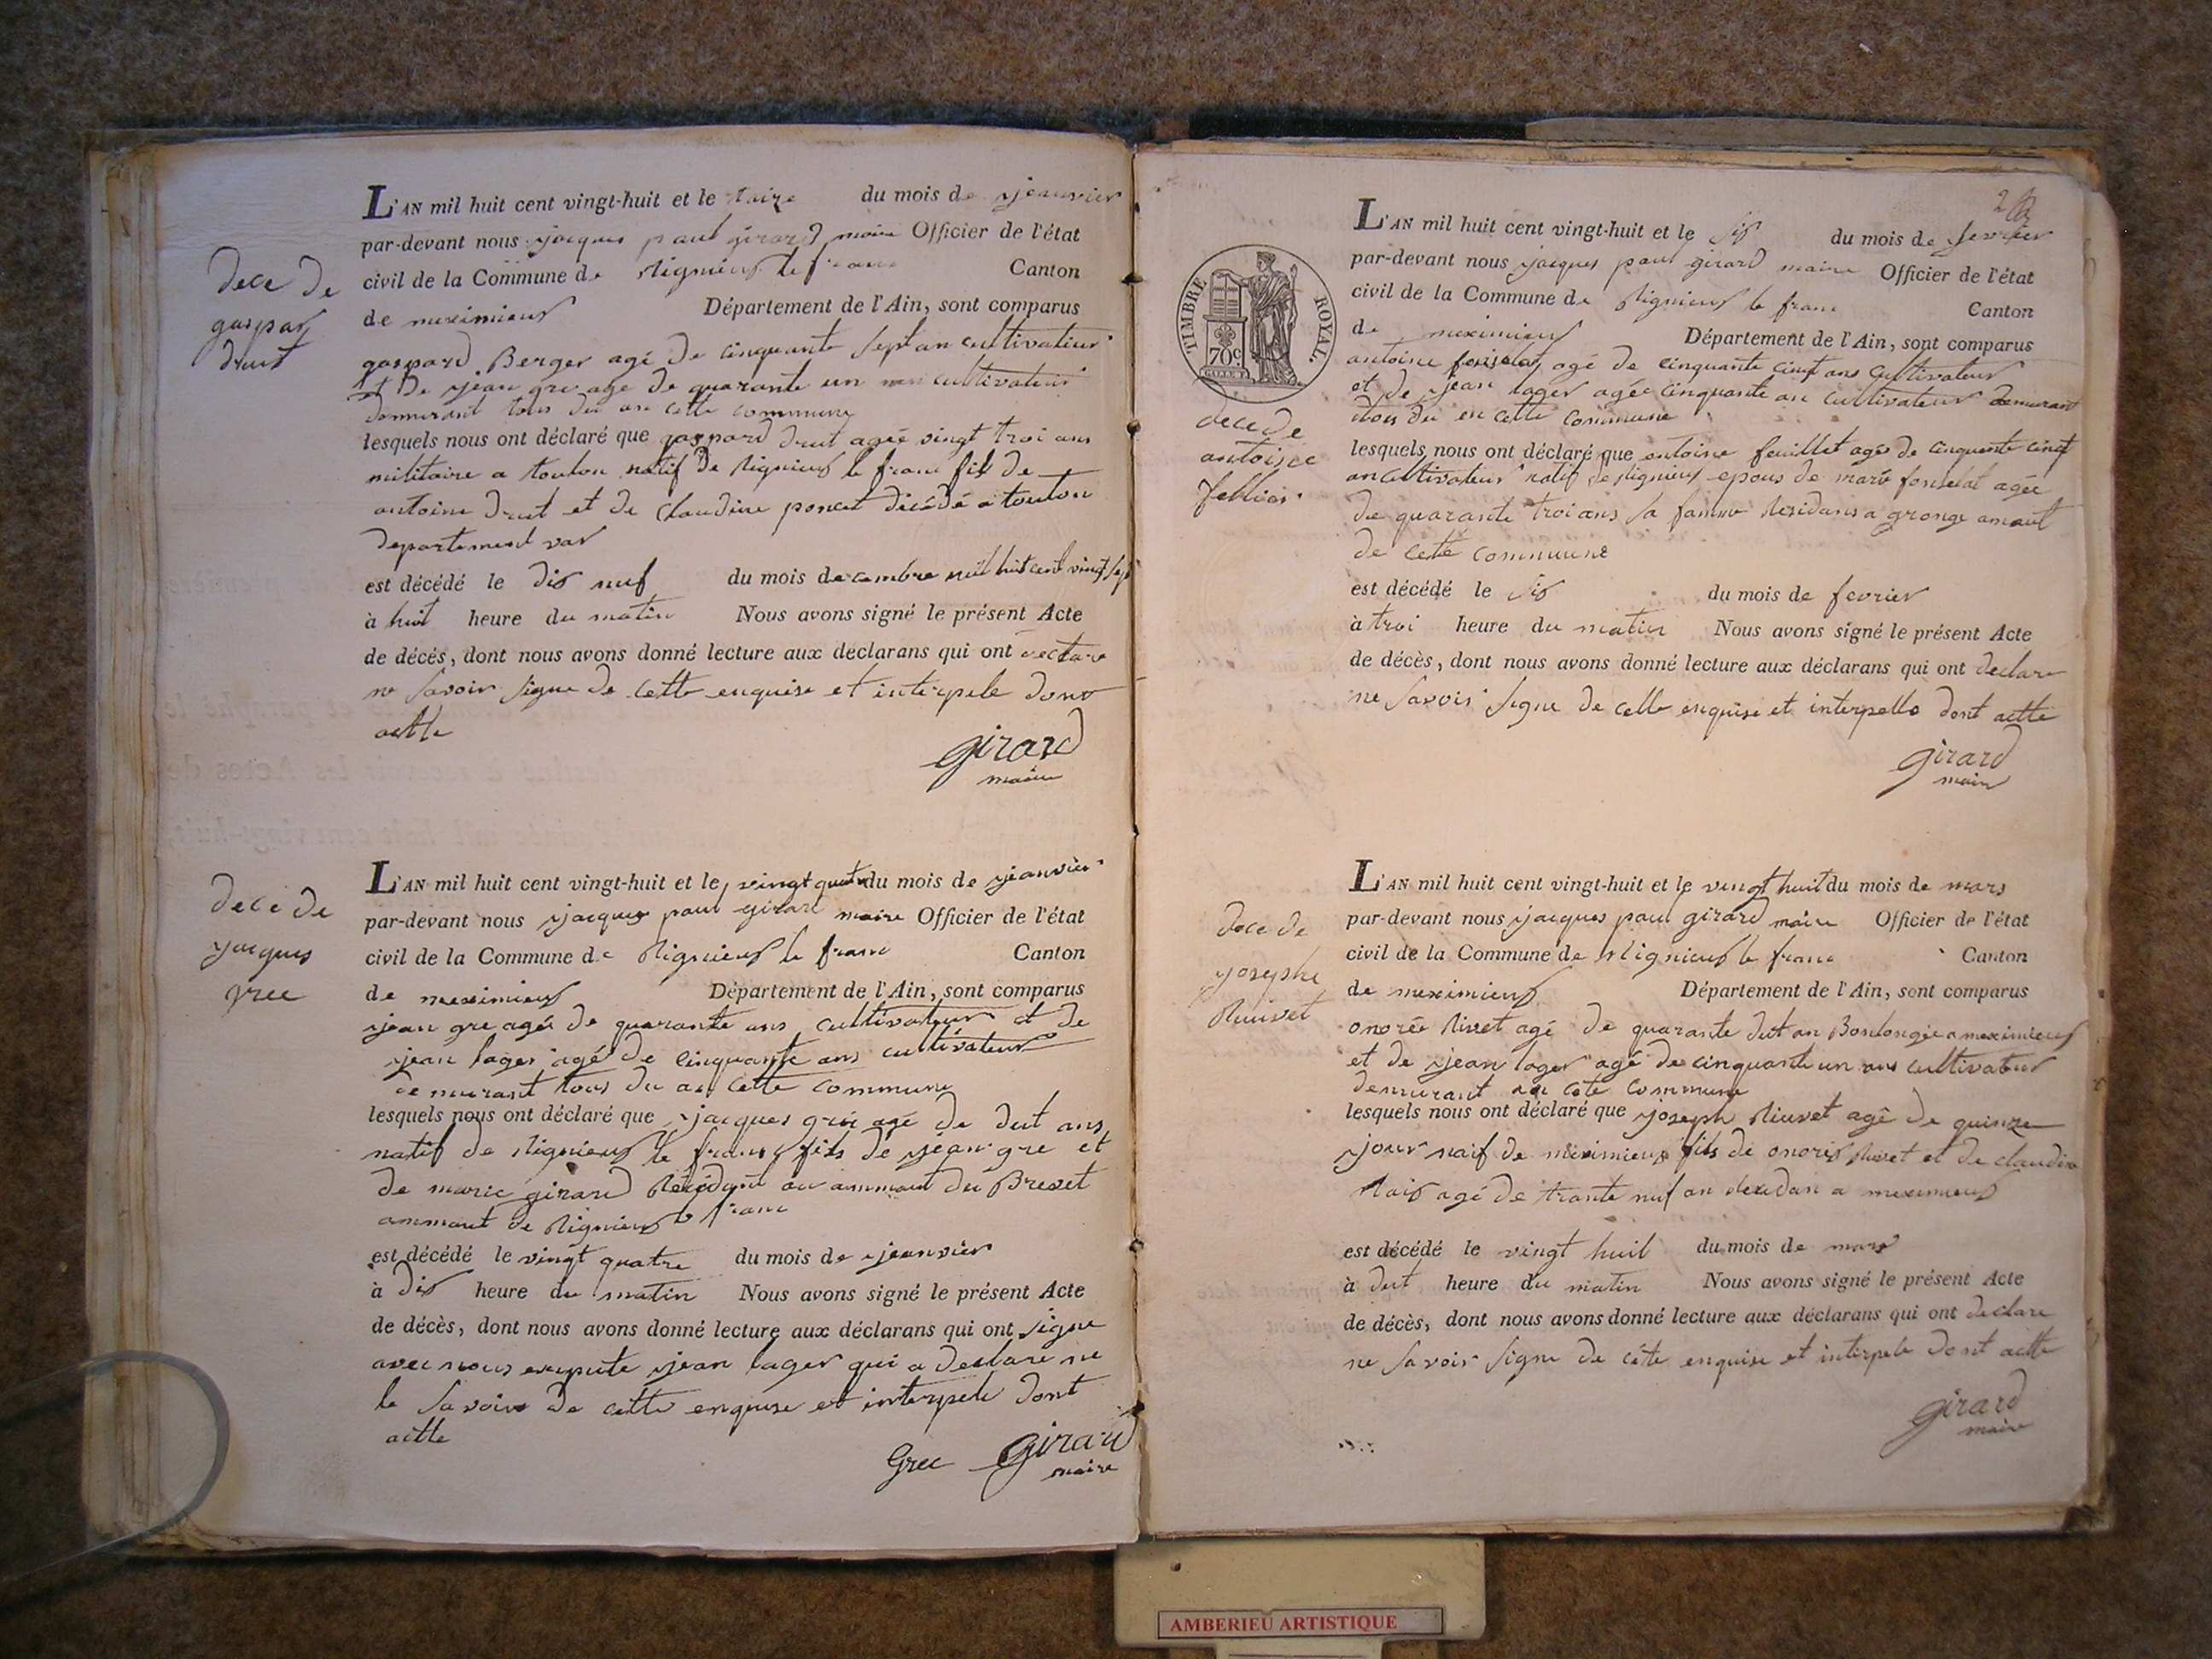 dece de
gaspar
druit
L'AN mil huit cent vingt-huit et le du mois de jeanvier
par-devant nous jacques paul girard maire Officier de l'état
civil de la Commune de Rignieux le franc Canton
de meximieux Département de l'Ain, sont comparus
gaspard Berger agé de cinquante sept an cultivateur
et de jean gre age de quarante un cultivateur
demurant tous du an cette commune
lesquels nous ont déclaré que gaspard druit agée vingt troi ans
militaire a toulon natif de Rignieux le franc fils de
antoine druit et de Claudine poncet décédé a toulon
departement var
est décédé le dix nuf du mois decembre mil huit cent vingt sept
à huit heure du matin Nous avons signé le présent Acte
de décés, dont nous avons donné lecture aux déclarans qui ont declare
ne savoir signe de cette enquise et interpele dont
actte
girard
maire
dece de
jacques
grec
L'AN mil huit cent vingt-huit et le vingt quatre du mois de jeanvier
par-devant nous jacques paul girard maire Officier de l'état
civil de la Commune de Rignieux le franc Canton
de meximieux Département de l'Ain, sont comparus
jean gre agée de quarante ans cultivateur et de
jean lager agé de cinquante ans cultivateur
demurant tous du an cette commune
lesquels nous ont déclaré que jacques gré agé de dut ans
natif de Rignieux le franc fils de jean gre et
de marie girard Résidant au ammaut du Brevet
ammaut de Rignieux franc
est décédé le vingt quatre du mois de jeanvier
à dix heure du matin Nous avons signé le présent Acte
de décès, dont nous avons donné lecture aux déclarans qui ont signe
avec nous exepute jean lager qui a declare ne
le savoir de cette enquise et interpele dont
actte
Grec girard
maire
2
TIMBRE ROYAL.
70c
L'AN mil huit cent vingt-huit et le six du mois de fevrier
par-devant nous jacques paul girard maire Officier de l'état
civil de la Commune de Rignieux le franc Canton
de meximieux Département de l'Ain, sont comparus
antoine agé de cinquante cinq ans cultivateur
et de jean lager agée cinquante an cultivateur demurant
tous du en cette commune
dece de
antoine
lesquels nous ont déclaré que antoine feuillet agée de cinquante cinq
an cultivateur natif de Rignieux epous de marie agée
de quarante troi ans sa famme Residans a grange amaut
de cette commune
est décédé le six du mois de fevrier
à troi heure du matin Nous avons signé le présent Acte
de décès, dont nous avons donné lecture aux déclarans qui ont declare
ne savoir signe de celle enquise et interpelle dont actte
girard
maire
dece de
josephe
Riuvet
L'AN mil huit cent vingt-huit et le vingt huit du mois de mars
par-devant nous jacques paul girard maire Officier de l'état
civil de la Commune de Rignieux le franc Canton
de meximieux Département de l'Ain, sont comparus
onorée Rivet agé de quarante dut an Boulongée a meximieux
et de jean lager agé de cinquante un ans cultivateur
demurant an cete commune
lesquels nous ont déclaré que joseph Riuvet agé de quinze
jour naif de meximieux fils de onorés Rivet et de claudine
agé de trante nuf an Residan a meximieux
est décédé le vingt huit du mois de mars
à dut heure du matin Nous avons signé le présent Acte
de décès, dont nous avons donné lecture aux déclarans qui ont declare
ne savoir signe de cete enquise et interpele dont actte
girard
maire
AMBERIEU ARTISTIQUE